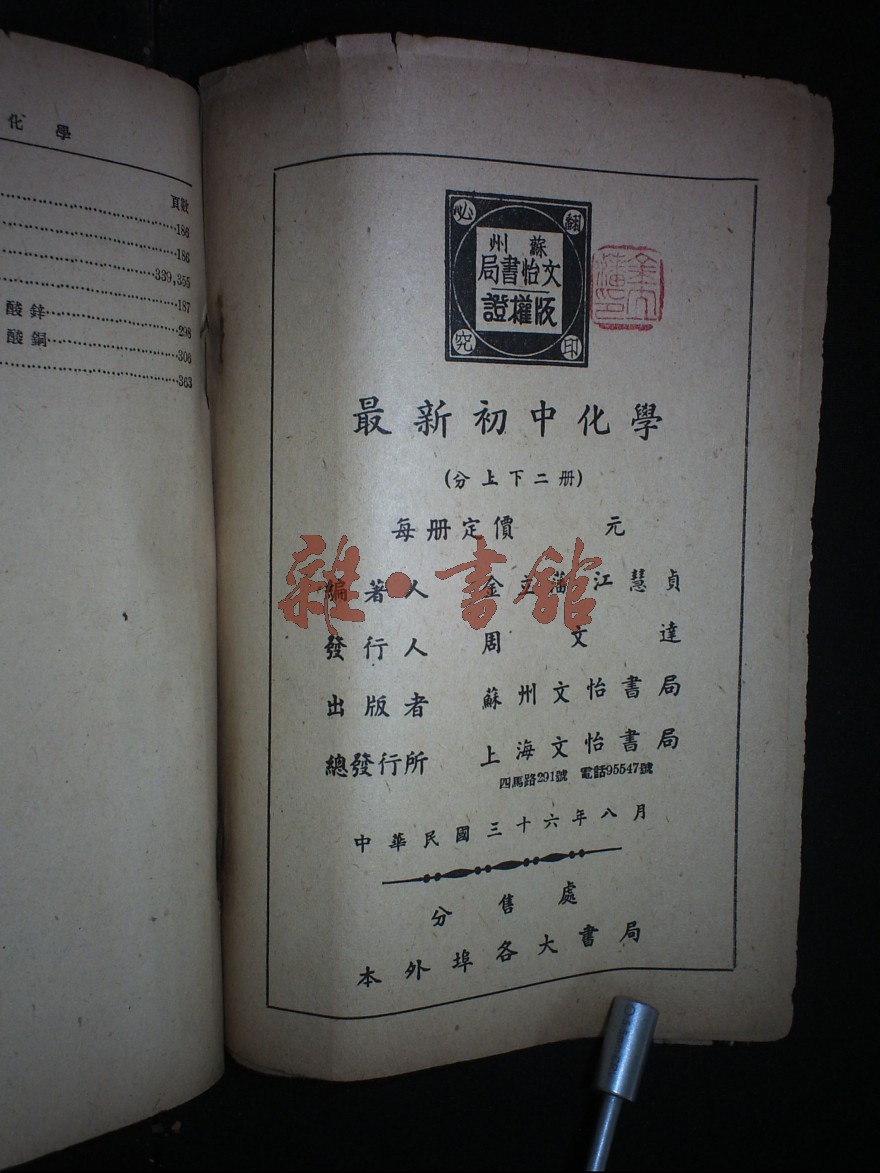 化學
頁數
186
186
339,355
187
酸鋅 298
酸銅 306
363
翻印必究
蘇州
文怡書局
版權證
金立藩印
最新初中化學
(分上下二册)
每册定價 元
編著人 金立藩 江慧貞
發行人 周文達
出版者 蘇州文怡書局
總發行所 上海文怡書局
四馬路291號 電話95547號
中華民國三十六年八月
分售處
本外埠各大書局
雜·書館